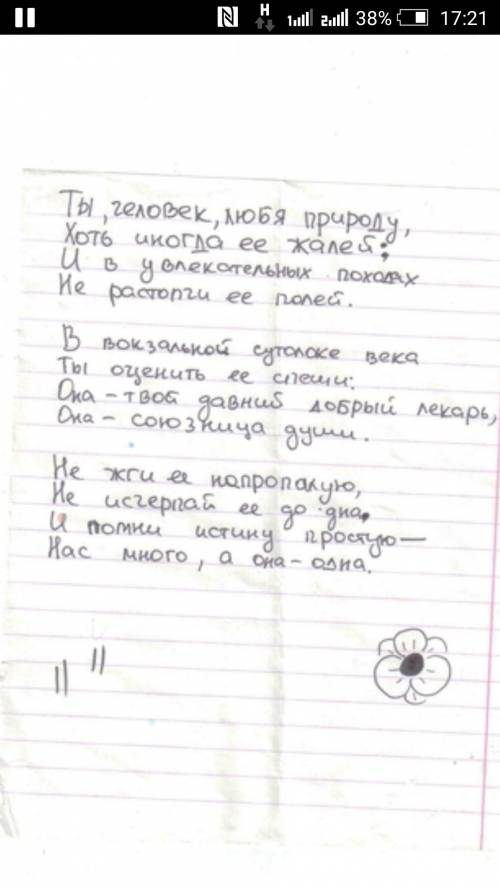 38% 17:21
Ты, человек, любя природу,
Хоть иногда ее жалей;
И в увлекательных походах
Не растопчи ее полей.
В вокзальной сутолоке века
Ты оценить ее спеши:
Она - твой давний добрый лекарь,
Она - союзница души.
Не жги ее напропалую,
Не исчерпай ее до дна,
И помни истину простую —
Нас много, а она - одна.